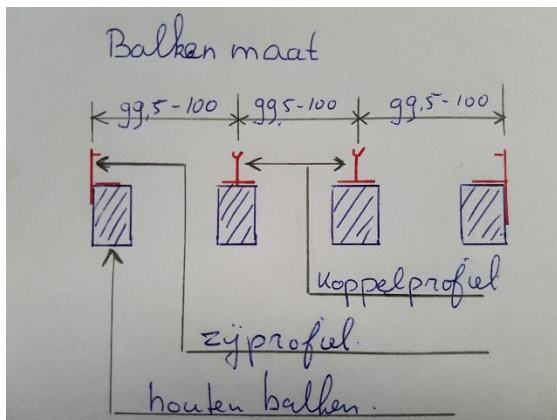 Balken maat
99,5-100 99,5-100 99,5-100
koppelprofiel
zijprofiel.
houten balken.